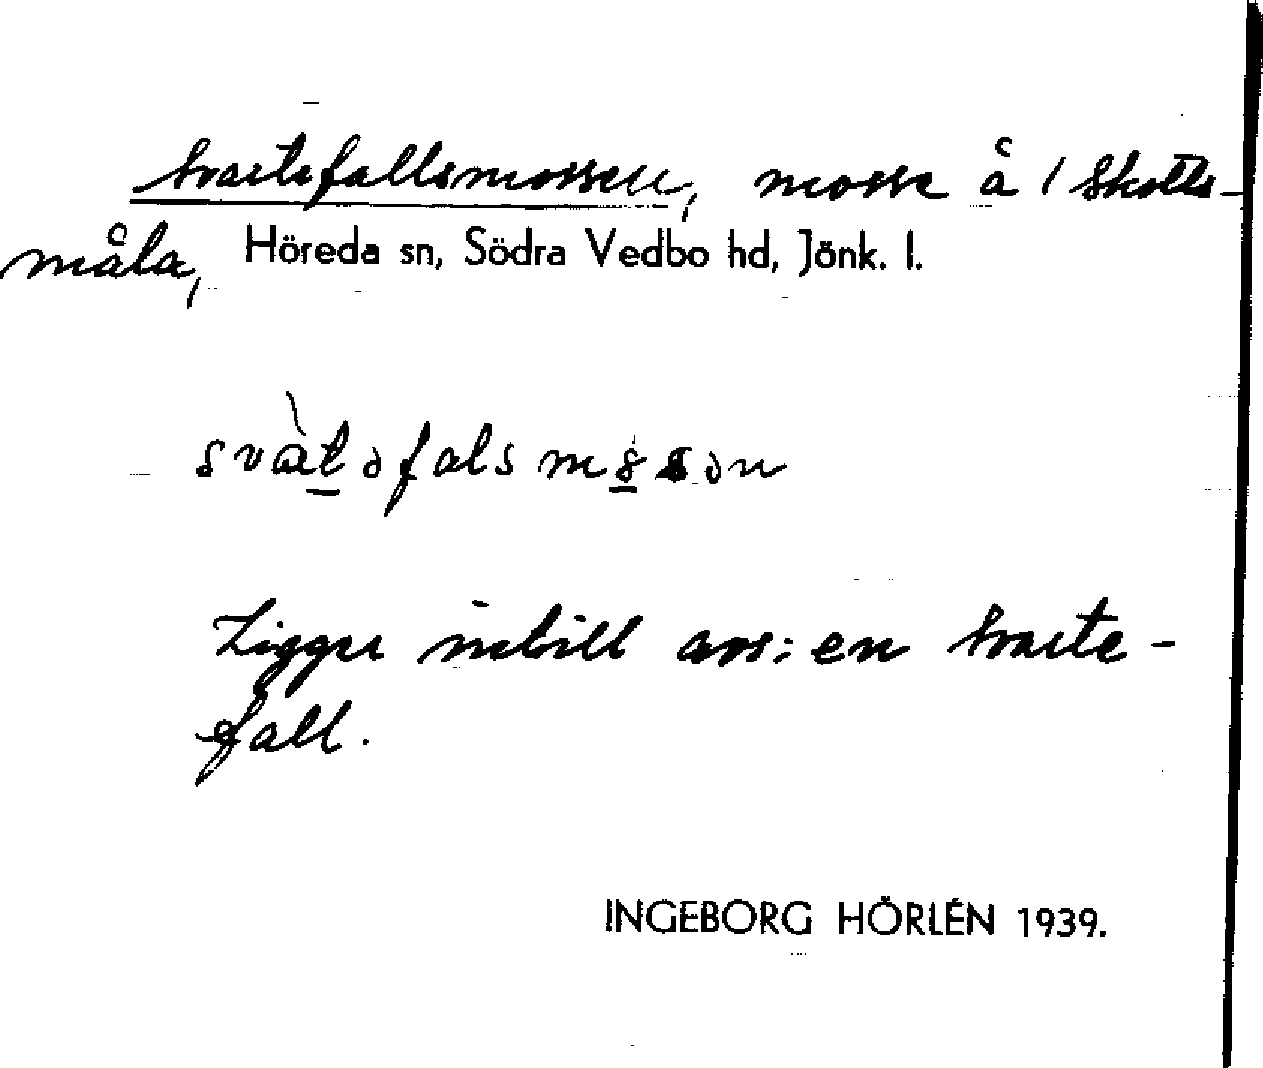 Svartefallsmossen, mosse å 1 Skotts-
måla, Höreda sn, Södra Vedbo hd, Jönk. l.
svàt̲əfalsm̲səən
Ligger intill ans: en Svarte-
fall.
INGEBORG HÖRLÉN 1939.